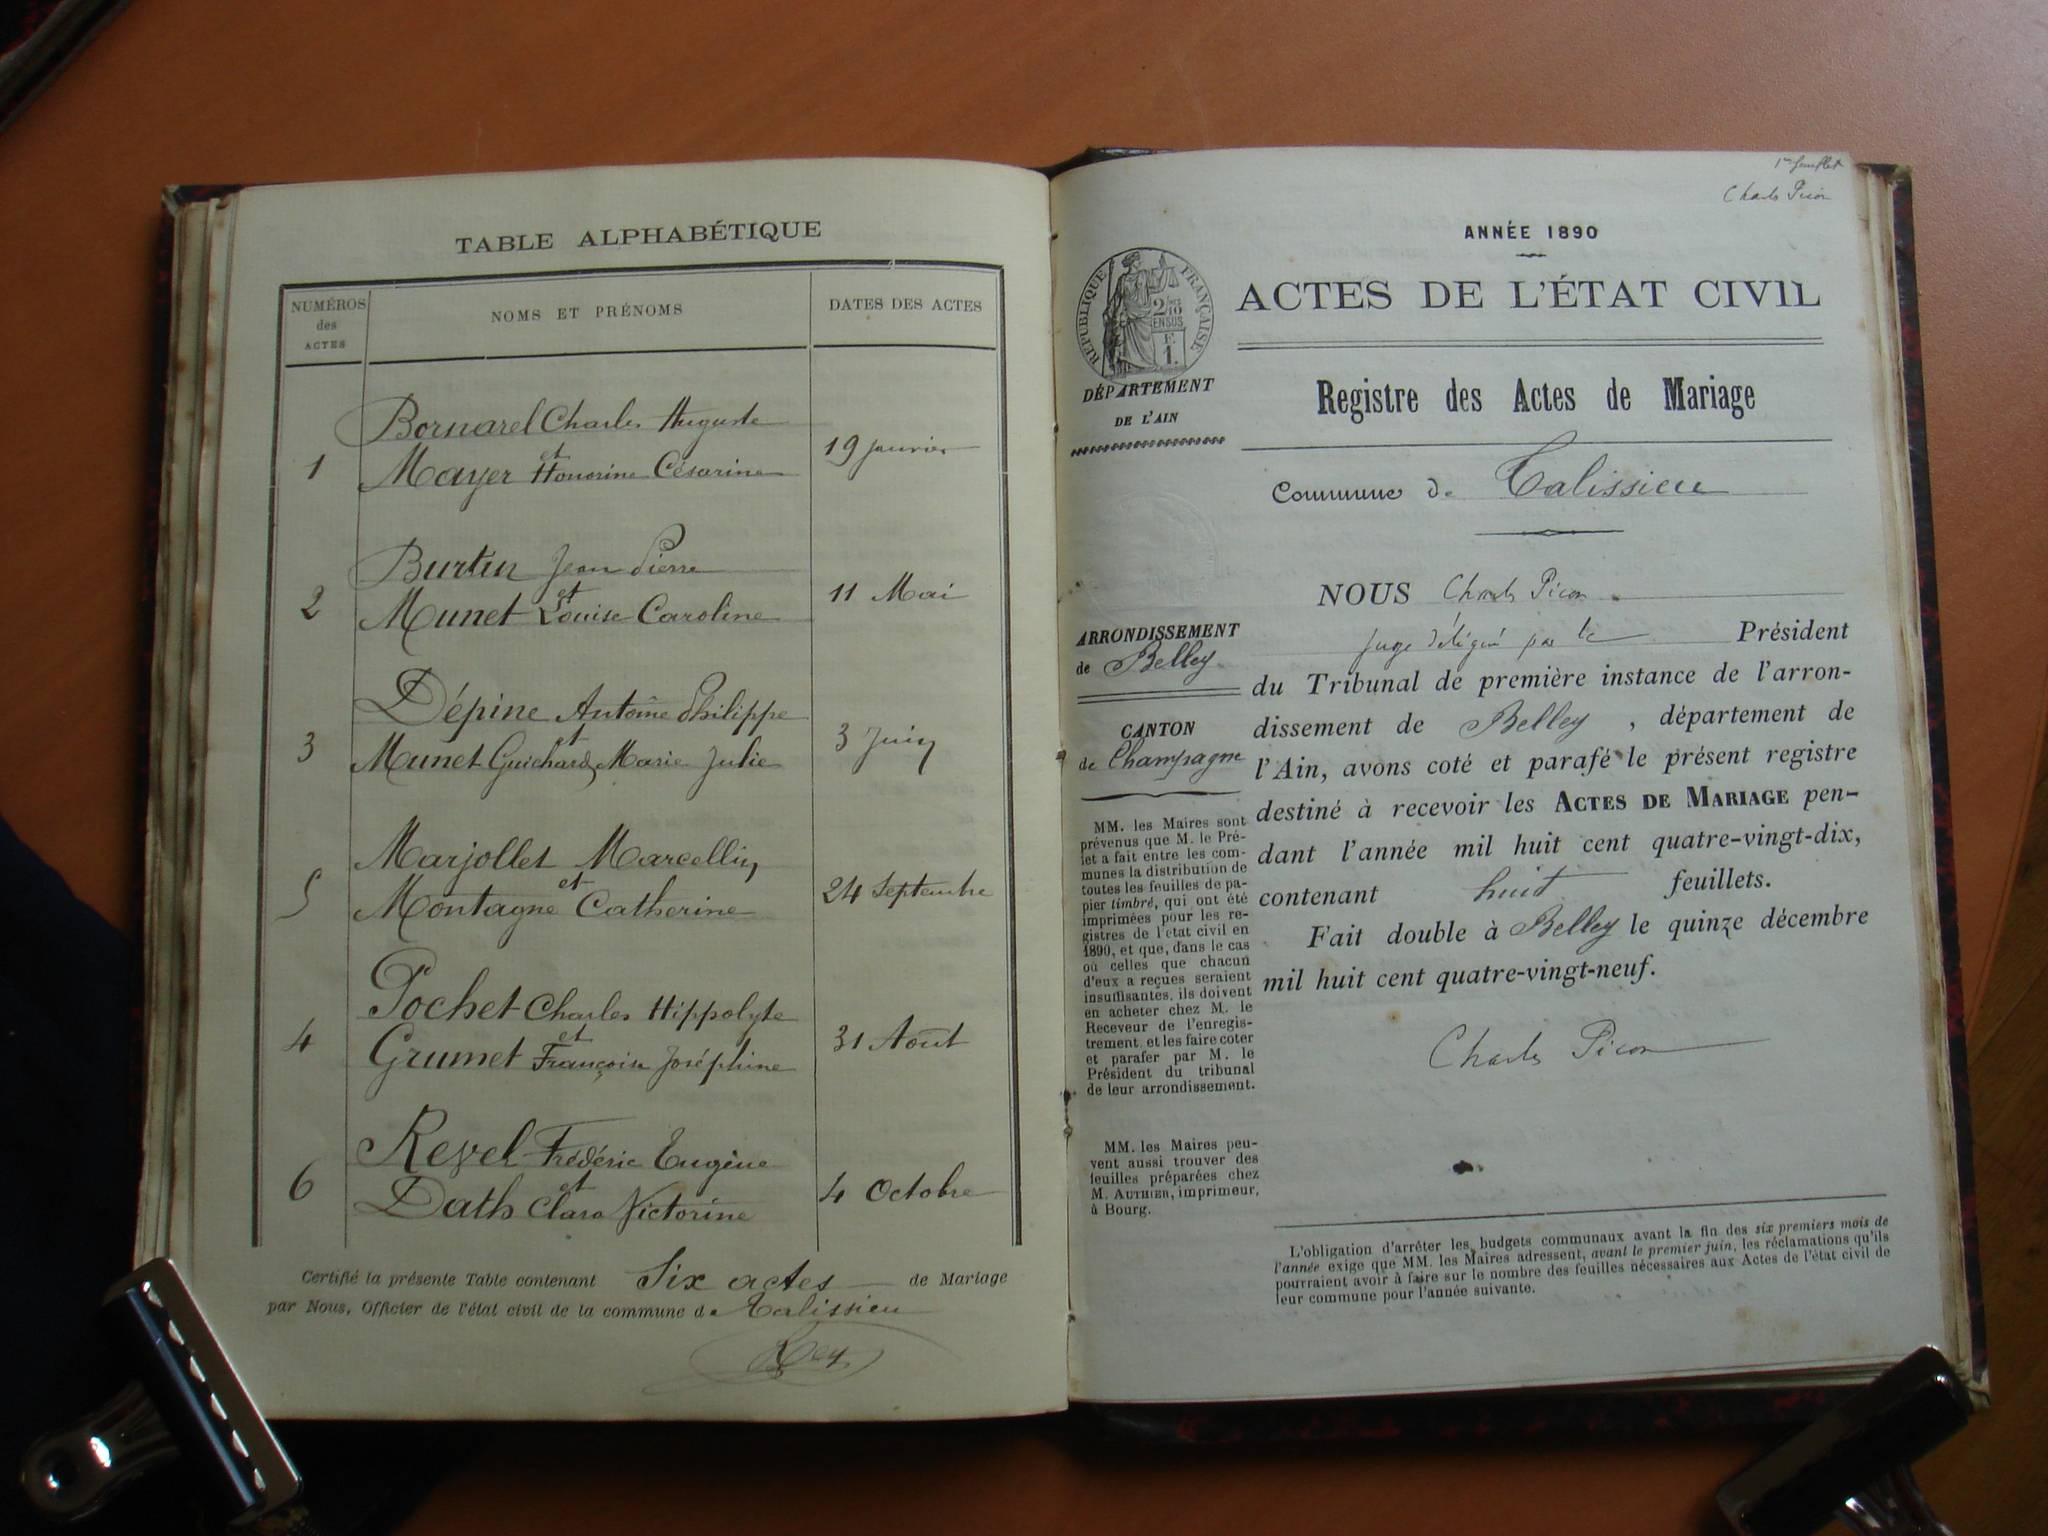 TABLE ALPHABÉTIQUE
NUMÉROS
des
ACTES
NOMS ET PRÉNOMS
DATES DES ACTES
Bornarel Charles Auguste
et
1 Mayer Honorine Césarine 19 janvier
Burtin Jean Pierre
et
2 Munet Louise Caroline 11 Mai
Dépine Antoine Philippe
et
3 Munet Guichard Marie Julie 3 Juin
Marjollet Marcellin
et
5 Montagne Catherine 24 Septembre
Pochet Charles Hippolyte
et
4 Grumet Françoise Joséphine 31 Août
Revel Frédéric Eugène
et
6 Dath Clara Victorine 4 Octobre
Certifié la présente Table contenant Six actes de Mariage
par Nous, Officier de l'état civil de la commune de Talissieu
Rey
1er feuillet
Charles Picon
ANNÉE 1890
ACTES DE L'ÉTAT CIVIL
RÉPUBLIQUE FRANÇAISE
2/10
EN SUS
F.
1.
DÉPARTEMENT
DE L'AIN
Registre des Actes de Mariage
Commune de Talissieu
ARRONDISSEMENT
de Belley
CANTON
de Champagne
MM. les Maires sont
prévenus que M. le Pré-
fet a fait entre les com-
munes la distribution de
toutes les feuilles de pa-
pier timbré, qui ont été
imprimées pour les re-
gistres de l'état civil en
1890, et que, dans le cas
où celles que chacun
d'eux a reçues seraient
insuffisantes, ils doivent
en acheter chez M. le
Receveur de l'enregis-
trement et les faire coter
et parafer par M. le
Président du tribunal
de leur arrondissement.
MM. les Maires peu-
vent aussi trouver des
feuilles préparées chez
M. AUTHIER, imprimeur,
à Bourg.
NOUS Charles Picon
juge délégué par le Président
du Tribunal de première instance de l'arron-
dissement de Belley, département de
l'Ain, avons coté et parafé le présent registre
destiné à recevoir les ACTES DE MARIAGE pen-
dant l'année mil huit cent quatre-vingt-dix,
contenant huit feuillets.
Fait double à Belley le quinze décembre
mil huit cent quatre-vingt-neuf.
Charles Picon
L'obligation d'arrêter les budgets communaux avant la fin des six premiers mois de
l'année exige que MM. les Maires adressent, avant le premier juin, les réclamations qu'ils
pourraient avoir à faire sur le nombre des feuilles nécessaires aux Actes de l'état civil de
leur commune pour l'année suivante.